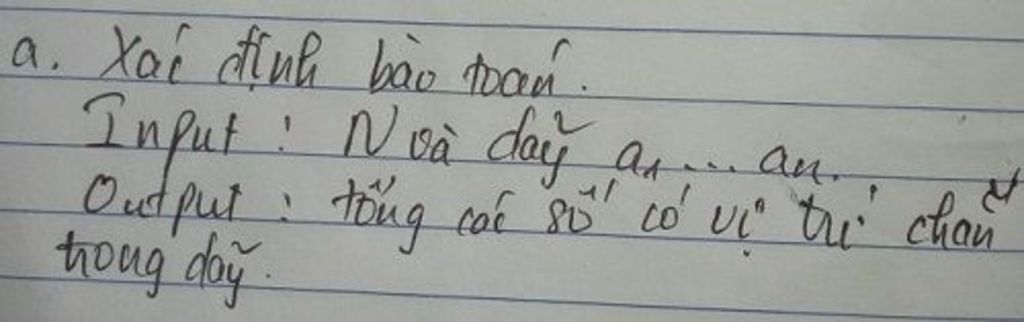 a. Xác định bào toán.
Input : N và dãy a1 ... an.
Output : tổng các số có vị trí chẵn
trong dãy.